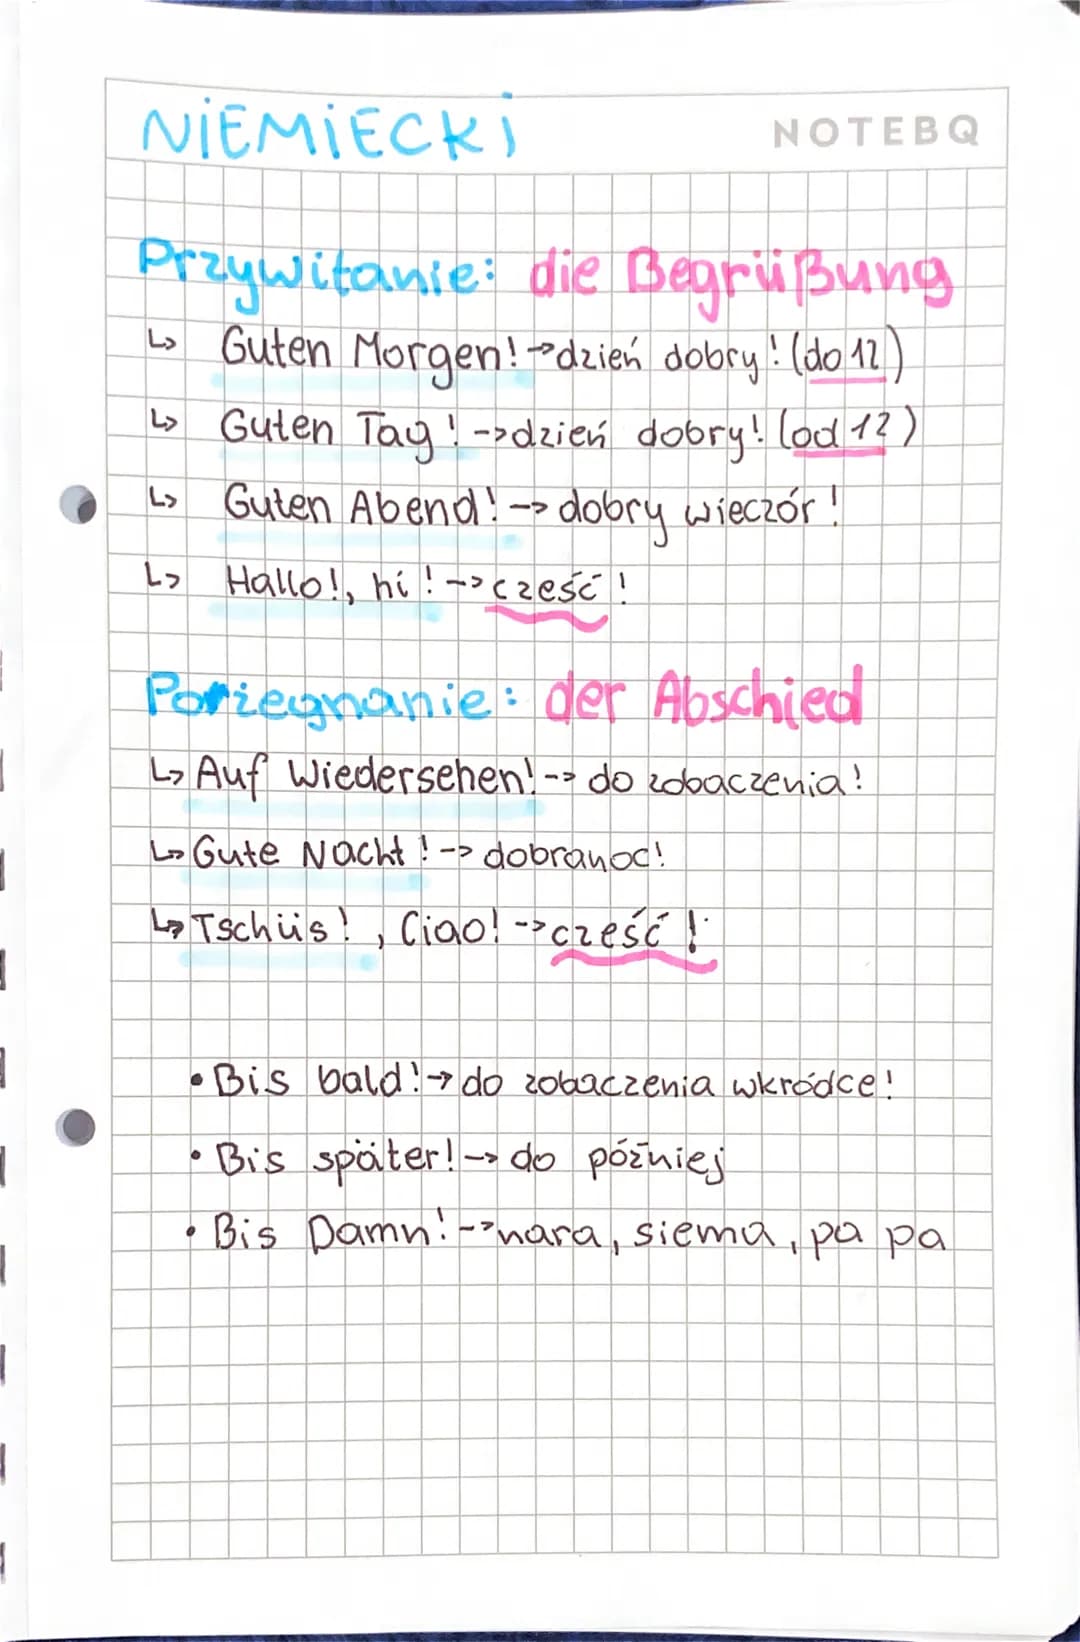 NiEMiECKi
NOTEBQ
Przywitanie: die Begrüßung
↳ Guten Morgen! → dzień dobry! (do 12)
↳ Guten Tag! -> dzień dobry! (od 12)
↳ Guten Abend! -> dobry wieczór!
↳ Hallo!, hi! -> cześć!
Porzegnanie: der Abschied
↳ Auf Wiedersehen! -> do zobaczenia!
↳ Gute Nacht! -> dobranoc!
↳ Tschüs!, Ciao! -> cześć!
• Bis bald! → do zobaczenia wkródce!
• Bis später! -> do później
• Bis Damn! -> nara, siema, pa pa